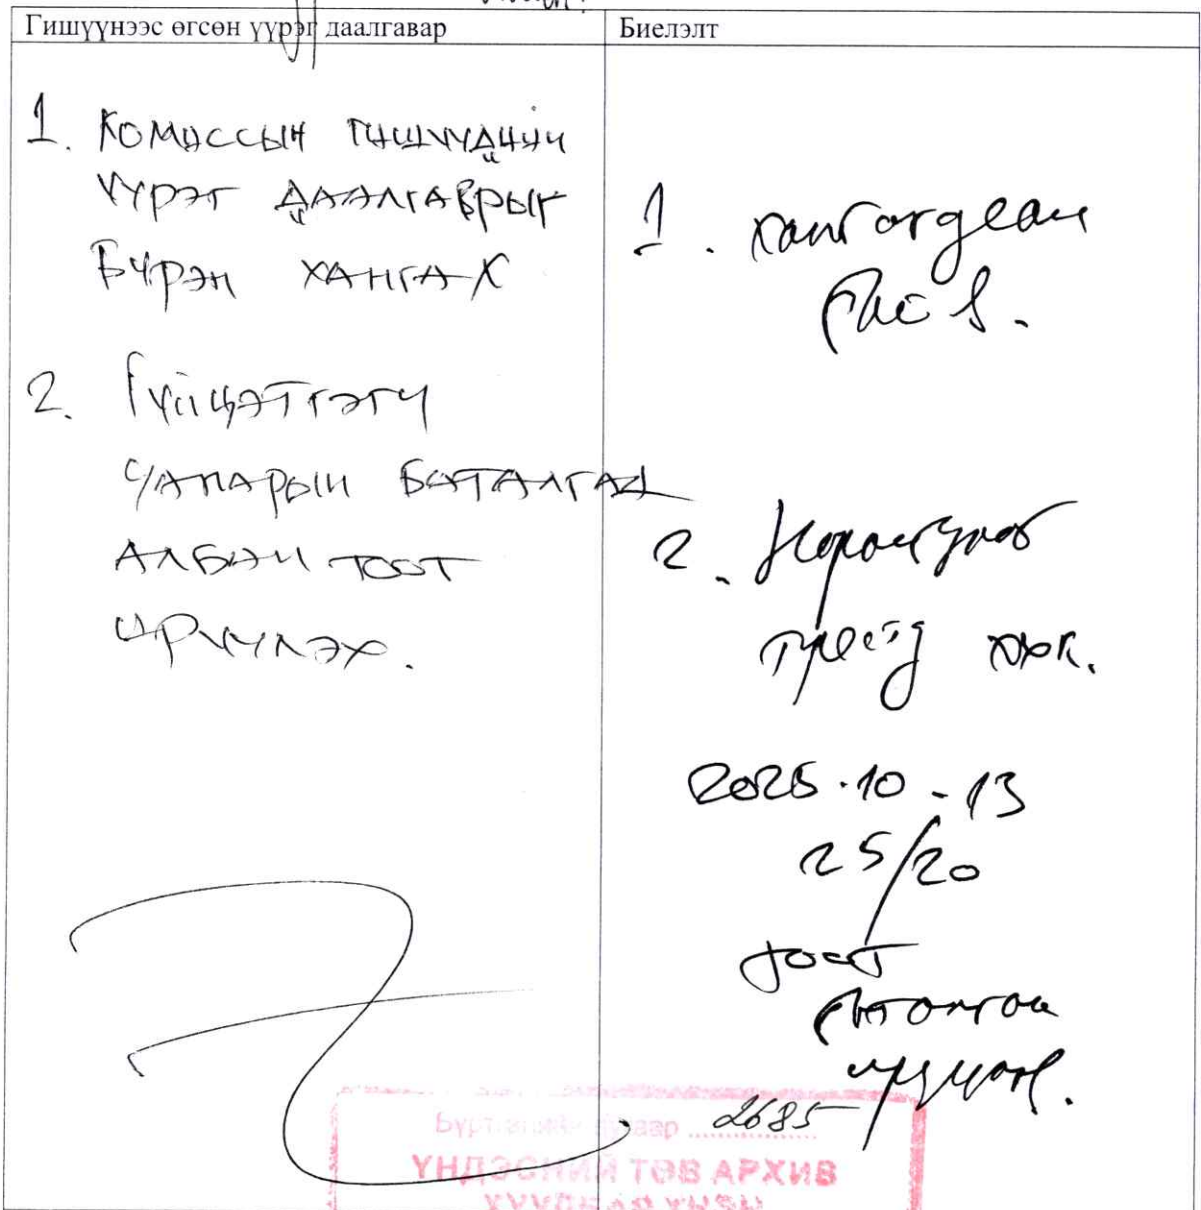 Гишүүнээс өгсөн үүрэг даалгавар
Биелэлт
1. КОМИССЫН ГИШҮҮДИЙН
ҮҮРЭГ ДААЛГАВРЫГ
БҮРЭН ХАНГАХ
2. Гүйцэтгэгч
ЧАНАРЫН БАТАЛГАА
АЛБАН ТООТ
ИРҮҮЛЭХ.
1. хангагдсан
2.
трейд ххк.
2025.10.13
25/20
тоот
баталгаа
Бүртгэлийн дугаар 2685
ҮНДЭСНИЙ ТӨВ АРХИВ
ХУУЛБАР ҮНЭН